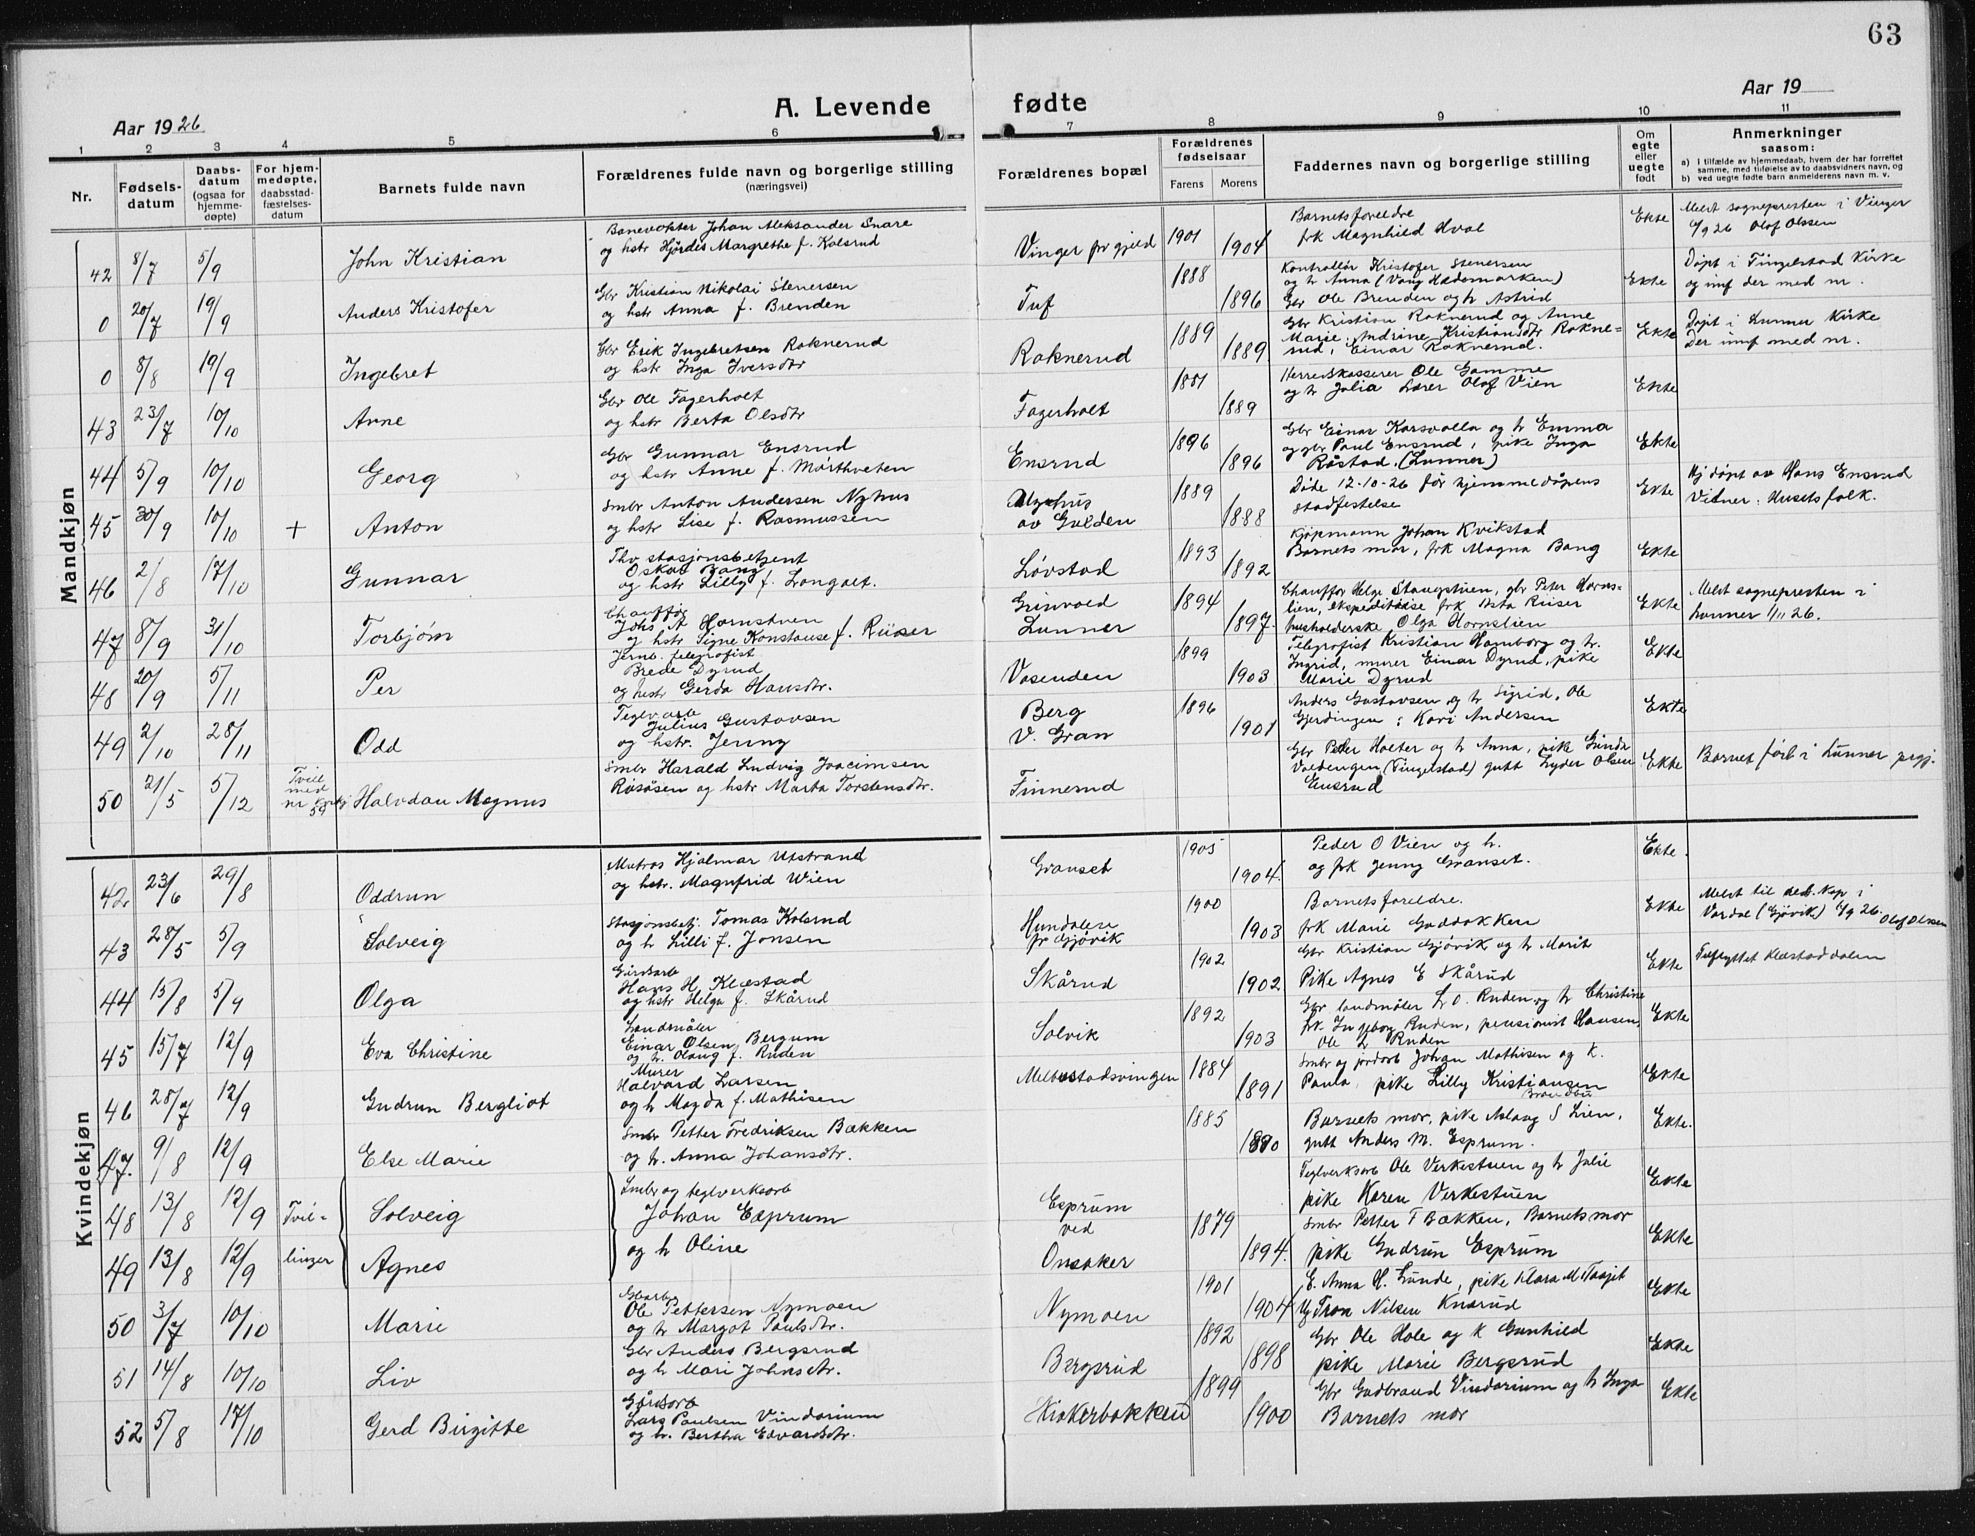 63
A. Levende fødte
Aar 1926
Aar 19
1 2 3 4 5 6 7 8 9 10 11
Nr.
Fødsels-
datum
Daabs-
datum
(ogsaa for
hjemme-
døpte)
For hjem-
medøpte,
daabsstad-
fæstelses-
datum
Barnets fulde navn
Forældrenes fulde navn og borgerlige stilling
(næringsvei)
Forældrenes bopæl
Forældrenes
fødselsaar
Farens Morens
Faddernes navn og borgerlige stilling
Om
egte
eller
uegte
født
Anmerkninger
saasom:
a) I tilfælde av hjemmedaab, hvem der har forrettet
samme, med tilføielse av to daabsvidners navn, og
b) ved uegte fødte barn anmelderens navn m. v.
Mandkjøn
42 8/7 5/9 John Kristian
Banevokter Johan Aleksander Snare
og hstr Hjørdis Margrethe f. Kolsrud
Vinger pr gjeld 1901 1904
Barnets foreldre
frk Magnhild Hval
Ekte
Meldt sognepresten i Vinger
6/9 26 Olof Olssen
0 20/7 19/9 Anders Kristofer
Gbr Kristian Nikolai Stenersen
og hstr Anna f. Brenden
Tuf 1888 1896
Kontrollør Kristofer Stenersen
og h Anna (Vang Hedemarken)
Gbr Ole Brenden og h Astrid
Ekte
Døpt i Tingelstad Kirke
og innf der med nr.
0 8/8 19/9 Ingebret
Gbr Erik Ingebretsen Raknerud
og hstr Inga Iversdtr
Raknerud 1889 1889
Gbr Kristian Raknerud og Anne
Marie, Andrine Kristiansdtr Rakne=
rud, Einar Raknerud.
Ekte
Døpt i Lunner Kirke
Der innf med nr.
43 23/7 10/10 Anne
Gbr Ole Fagerholt
og hstr Berta Olsdtr
Fagerholt 1881 1889
Herredskasserer Ole Gamme
og h Julia Lærer Olof Vien
Ekte
44 5/9 10/10 Georg
Gbr Gunnar Ensrud
og hstr Anne f. Mørthveten
Ensrud 1896 1896
Gbr Einar Korsvolla og h Emma
og gbr Paul Ensrud, pike Inga
Røstad. (Lunner)
Ekte
45 30/9 10/10 + Anton
Smbr Anton Andersen Nyhus
og hstr Lise f. Rasmussen
Nyhus
av Gulden 1889 1888
Døde 12-10-26 før hjemmedåpens
stadfestelse
Ekte
Hj døpt av Hans Ensrud
Vidner: Husets folk.
46 2/8 17/10 Gunnar
Fhv stasjonsbetjent
Oskar Bang
og hstr Lilly f. Longvet.
Løvstad 1893 1892
Kjøpmann Johan Kvikstad
Barnets mor, frk Magna Bang
Ekte
47 8/9 31/10 Torbjørn
Chauffør
Johs. A Hornstuen
og hstr Signe Konstanse f. Riiser
Grinvold
Lunner 1894 1897
Chauffør Helge Staugstuen, gbr Peter Horns-
lien, ekspeditrise frk Asta Riiser
husholderske Olga Hornslien
Ekte
Meldt sognepresten i
Lunner 1/11 26.
48 20/9 5/11 Per
Jernb. telegrafist
Brede Dyrud
og hstr Gerda Hansdtr.
Vasenden 1899 1903
Telegrafist Kristian Hamborg og h.
Ingrid, murer Einar Dyrud, pike
Marie Dyrud
Ekte
49 2/10 28/11 Odd
Teglv arb
Julius Gustavsen
og hstr. Jenny
Berg
v. Gran 1896 1901
Anders Gustavsen og h Sigrid, Ole
Gjerdingen : Kari Andersen
Ekte
50 21/5 5/12
Tvill
med
nr
59
Halvdan Magnus
Smbr Harald Ludvig Joacimsen
Røsåsen og hstr Marta Torstensdtr.
Finnerud
Gbr Peter Holter og h Anna, pike Gunda
Veldengen (Tingelstad) gutt Lyder Olsen
Ensrud
Ekte
Barnet født i Lunner prgj.
Kvindekjøn
42 23/6 29/8 Oddrun
Matros Hjalmar Utstrand
og hstr. Magnfrid Wien
Granset 1905 1904.
Peder O Vien og h.
og frk Jenny Granset.
Ekte.
43 28/5 5/9 Solveig
Stasjonsbetj. Tomas Kolsrud
og h Lilli f. Jonsen
Hundalen
pr Gjøvik 1900 1903
Barnets foreldre.
frk Marie Gaddokken
Ekte
Meldt til res. Kap i
Vardal (Gjøvik) 6/9 26. Olof Olssen
44 15/8 5/9 Olga
Gårdsarb
Hans H. Klæstad
og hstr Helga f. Skårud
Skårud 1902 1902
Gbr Kristian Gjøvik og h Marit
Pike Agnes E Skårud
Ekte
Tilflyttet Klæstaddalen
45 15/7 12/9 Eva Christine
Landmåler
Einar Olsen Bergum
og h. Olaug f. Ruden
Solvik 1892 1903
Gbr landmåler L O. Ruden og h Christine
frk Ingeborg Ruden, pensionist Hansen,
Ole L Ruden
Ekte
46 28/7 12/9 Gudrun Bergliot
Murer
Halvard Larsen
og h Magda f. Mathisen
Melbostadsvingen 1884 1891
Smbr og jordarb Johan Mathisen og K.
Paula, pike Lilly Kristiansen
Brandbu
Ekte
47. 9/8 12/9 Else Marie
Smbr Petter Fredriksen Bækken
og h. Anna Johansdtr.
1885 1880
Barnets mor, pike Aslaug S Lien,
gutt Anders M. Esprum.
Ekte.
48 13/8 12/9 Tvil= Solveig
Smbr og teglverksarb
Johan Esprum
og h Oline
Esprum
ved
Onsaker 1879 1894.
Teglverksarb Ole Verkestuen og h Julie
pike Karen Verkestuen
Ekte
49 13/8 12/9 linger Agnes
Smbr Petter F Bækken, Barnets mor
pike Gudrun Esprum
Ekte
50 3/7 10/10 Marie
Gbarb
Ole Pettersen Nymoen
og h Margot Paulsdtr.
Nymoen 1901 1904
E. Anna H. Lunde, pike Klara M. Taajet
Ug Tron Nilsen Knarud
Ekte
51 14/8 10/10 Liv
Gbr Anders Bergsrud
og h Mari Johnsdtr.
Bergsrud 1892 1898
Gbr Ole Hole og K Gunhild
pike Marie Bergsrud
Ekte
52 5/8 17/10 Gerd Birgitte
Gårdsarb
Lars Paulsen Vindorium
og h. Bertha Edvardsdtr.
Hiskerbakken 1899 1900
Gbr Gudbrand Vindorium og h Inga
Barnets mor
Ekte